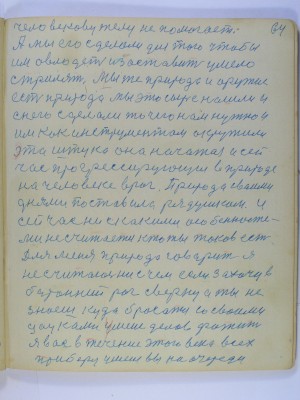 человеку делу не помогает.- 64
А мы его сделали для того чтобы
им овладеть и заставить умело
стрелят. Мы же природа и оружие
есть природа мы это сырье нашли и
с него сделали то чего нам нужно и
им как инструментом окружили
эта штука она начатая и сей
час прогрессирующи в природе
на человека враг. Природа своими
днями поставила рядушком. И
сейчас ни с какими особенностя-
ми не считается кто ты таков есть.
Для меня природа говорит я
не считаюсь ни с чем если захочу в
бараний рог сверну а ты не
знаеш куда бросаться со своими
науками умещ делов
я вас в течение этого века всех
приберу умещ вы на очереди